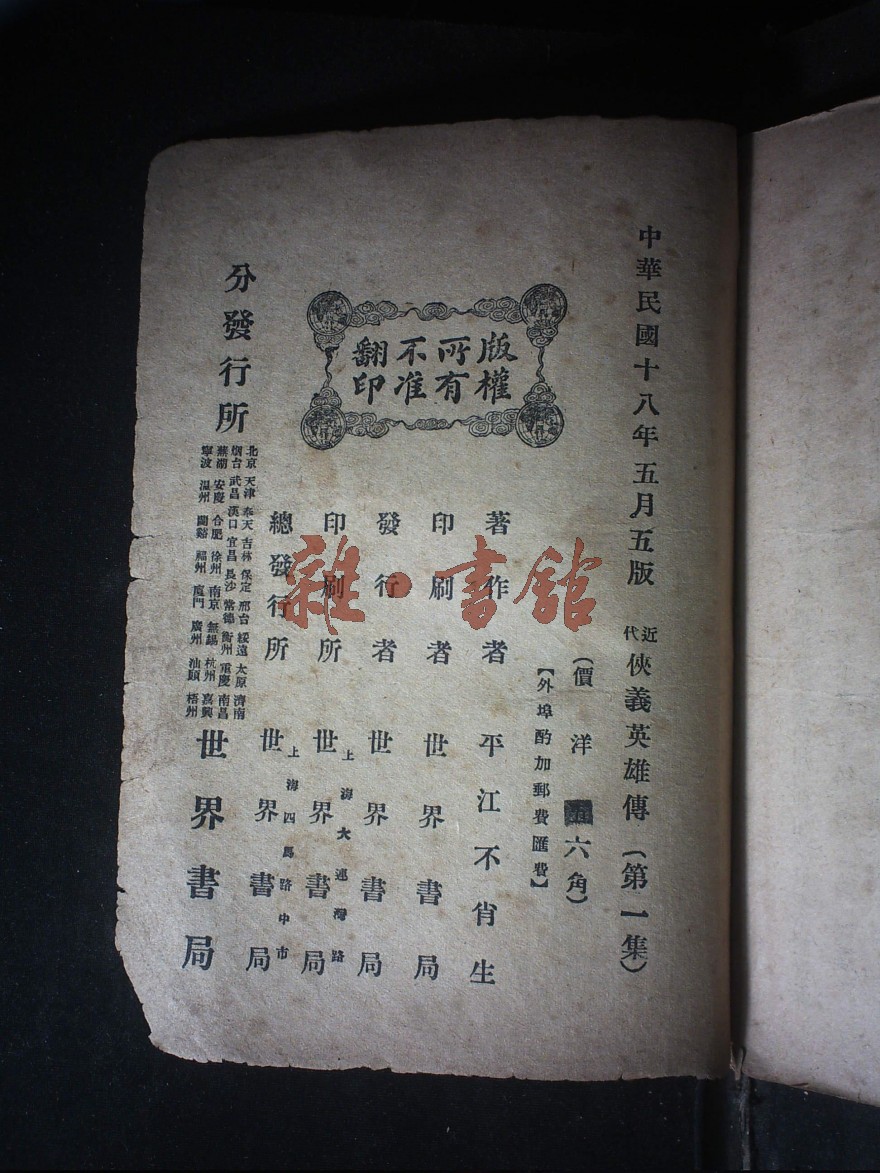 中華民國十八年五月五版
近代俠義英雄傳（第一集）
（價洋六角）
【外埠酌加郵費匯費】
版權所有不准翻印
著作者 平江不肖生
印刷者 世界書局
發行者 世界書局
印刷所 上海大連灣路 世界書局
總發行所 上海四馬路中市 世界書局
分發行所
北京 天津 奉天 吉林 保定 邢台 綏遠 太原 濟南
烟台 武昌 漢口 宜昌 長沙 常德 衡州 重慶 南昌
蕪湖 安慶 合肥 徐州 南京 無錫 杭州 嘉興
寧波 溫州 蘭谿 福州 廈門 廣州 汕頭 梧州
世界書局
雜·書館